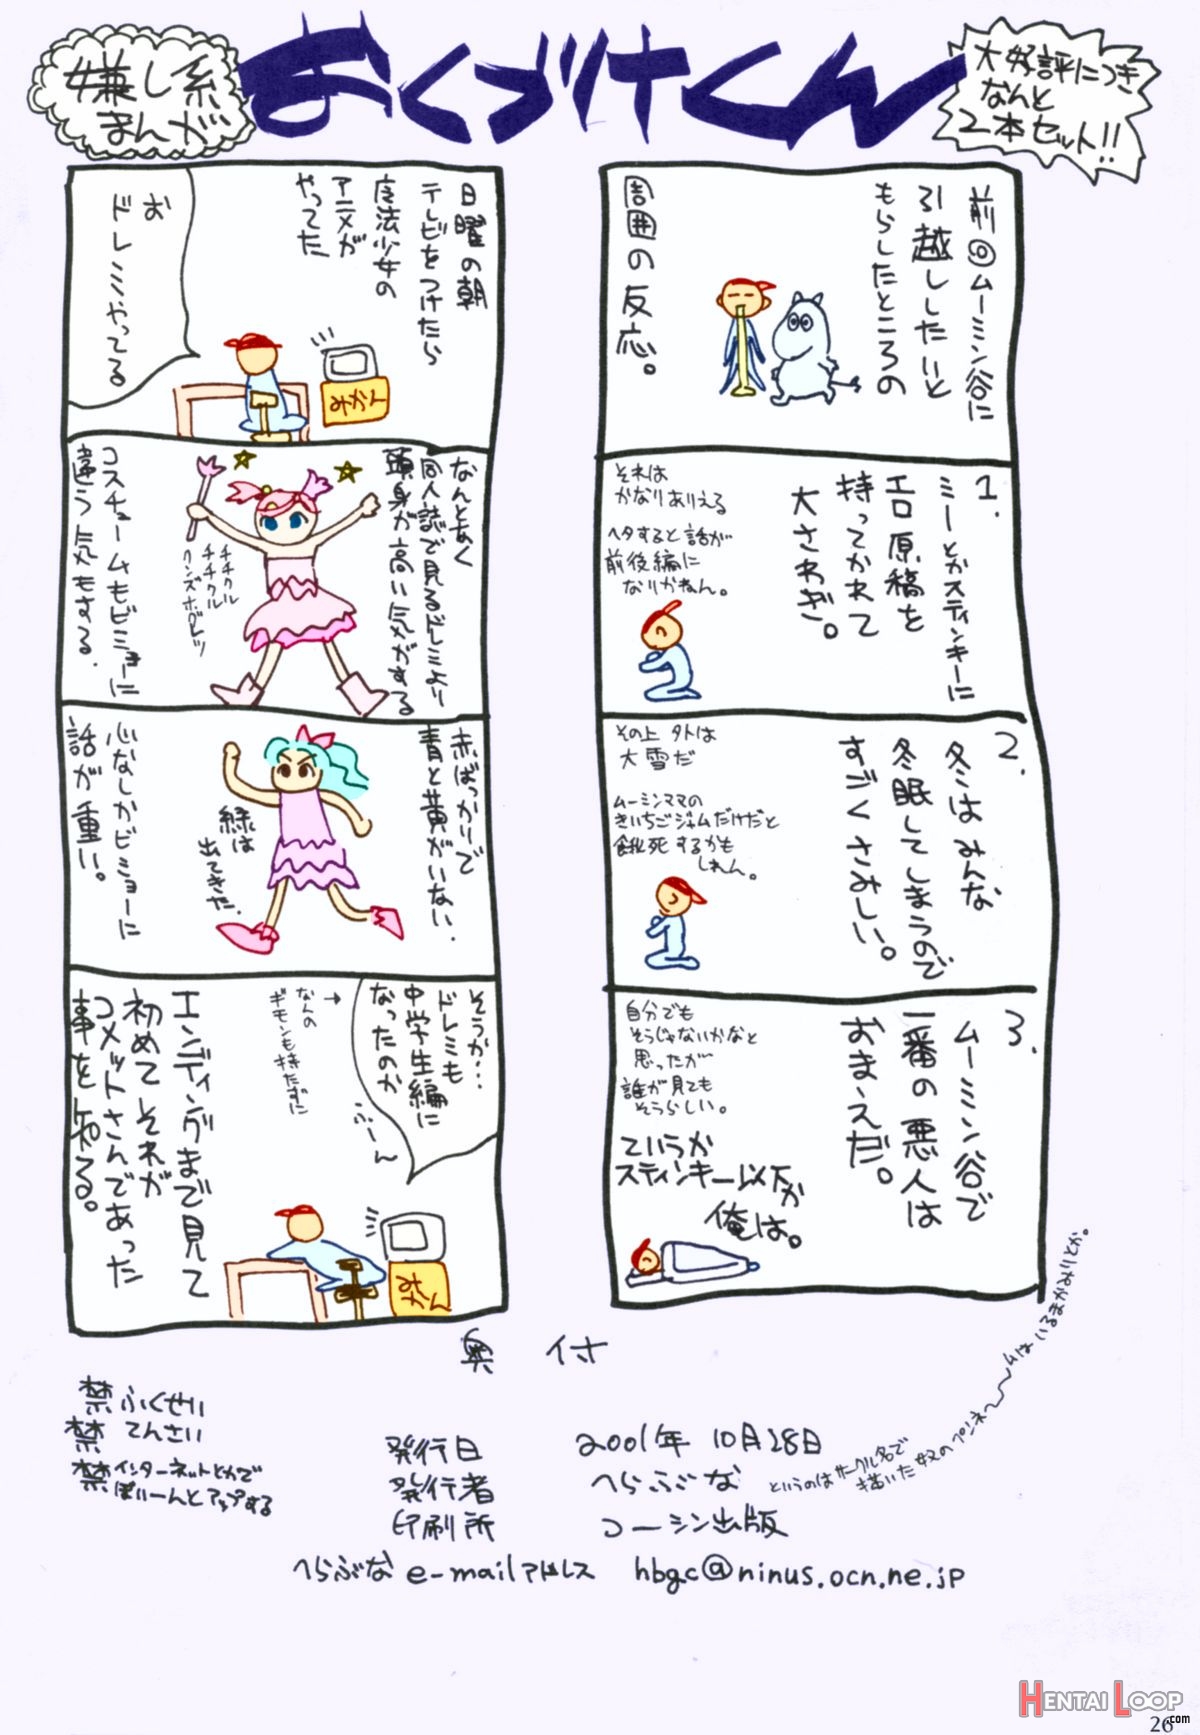 嫌し系
まんが
おくづけくん
大好評につき
なんと
2本セット!!
前回ムーミン谷に
引越ししたいと
もらしたところの
周囲の反応。
1.
ミーとかスティンキーに
エロ原稿を
持ってかれて
大さわぎ。
それは
かなりありえる
ヘタすると話が
前後編に
なりかねん。
2.
冬はみんな
冬眠してしまうので
すごくさみしい。
その上 外は
大雪だ
ムーミンママの
きいちごジャムだけだと
餓死するかも
しれん。
3.
ムーミン谷で
一番の悪人は
おまえだ。
自分でも
そうじゃないかなと
思ったが
誰が見ても
そうらしい。
ていうか
スティンキー以下か
俺は。
日曜の朝
テレビをつけたら
魔法少女の
アニメが
やってた
お
ドレミやってる
みかん
なんとなく
同人誌で見るドレミより
頭身が高い気がする
チチクル
チチクル
クンズホグレツ
コスチュームもビミョーに
違う気もする.
赤ばっかりで
青と黄がいない.
緑は
出てきた.
心なしかビミョーに
話が重い。
そうか…
ドレミも
中学生編に
なったのか
ふーん
→
なんの
ギモンも持たずに
エンディングまで見て
初めてそれが
コメットさんであった
事を知る。
みかん
奥付
禁ふくせい
禁てんさい
禁インターネットとかで
ばいーんとアップする
発行日 2001年 10月28日
発行者 へらぶな
というのはサークル名で
描いた奴のペンネームはいるまかみりとか。
印刷所 コーシン出版
へらぶな e-mailアドレス hbgc@ninus.ocn.ne.jp
HENTAI LOOP
.com
26